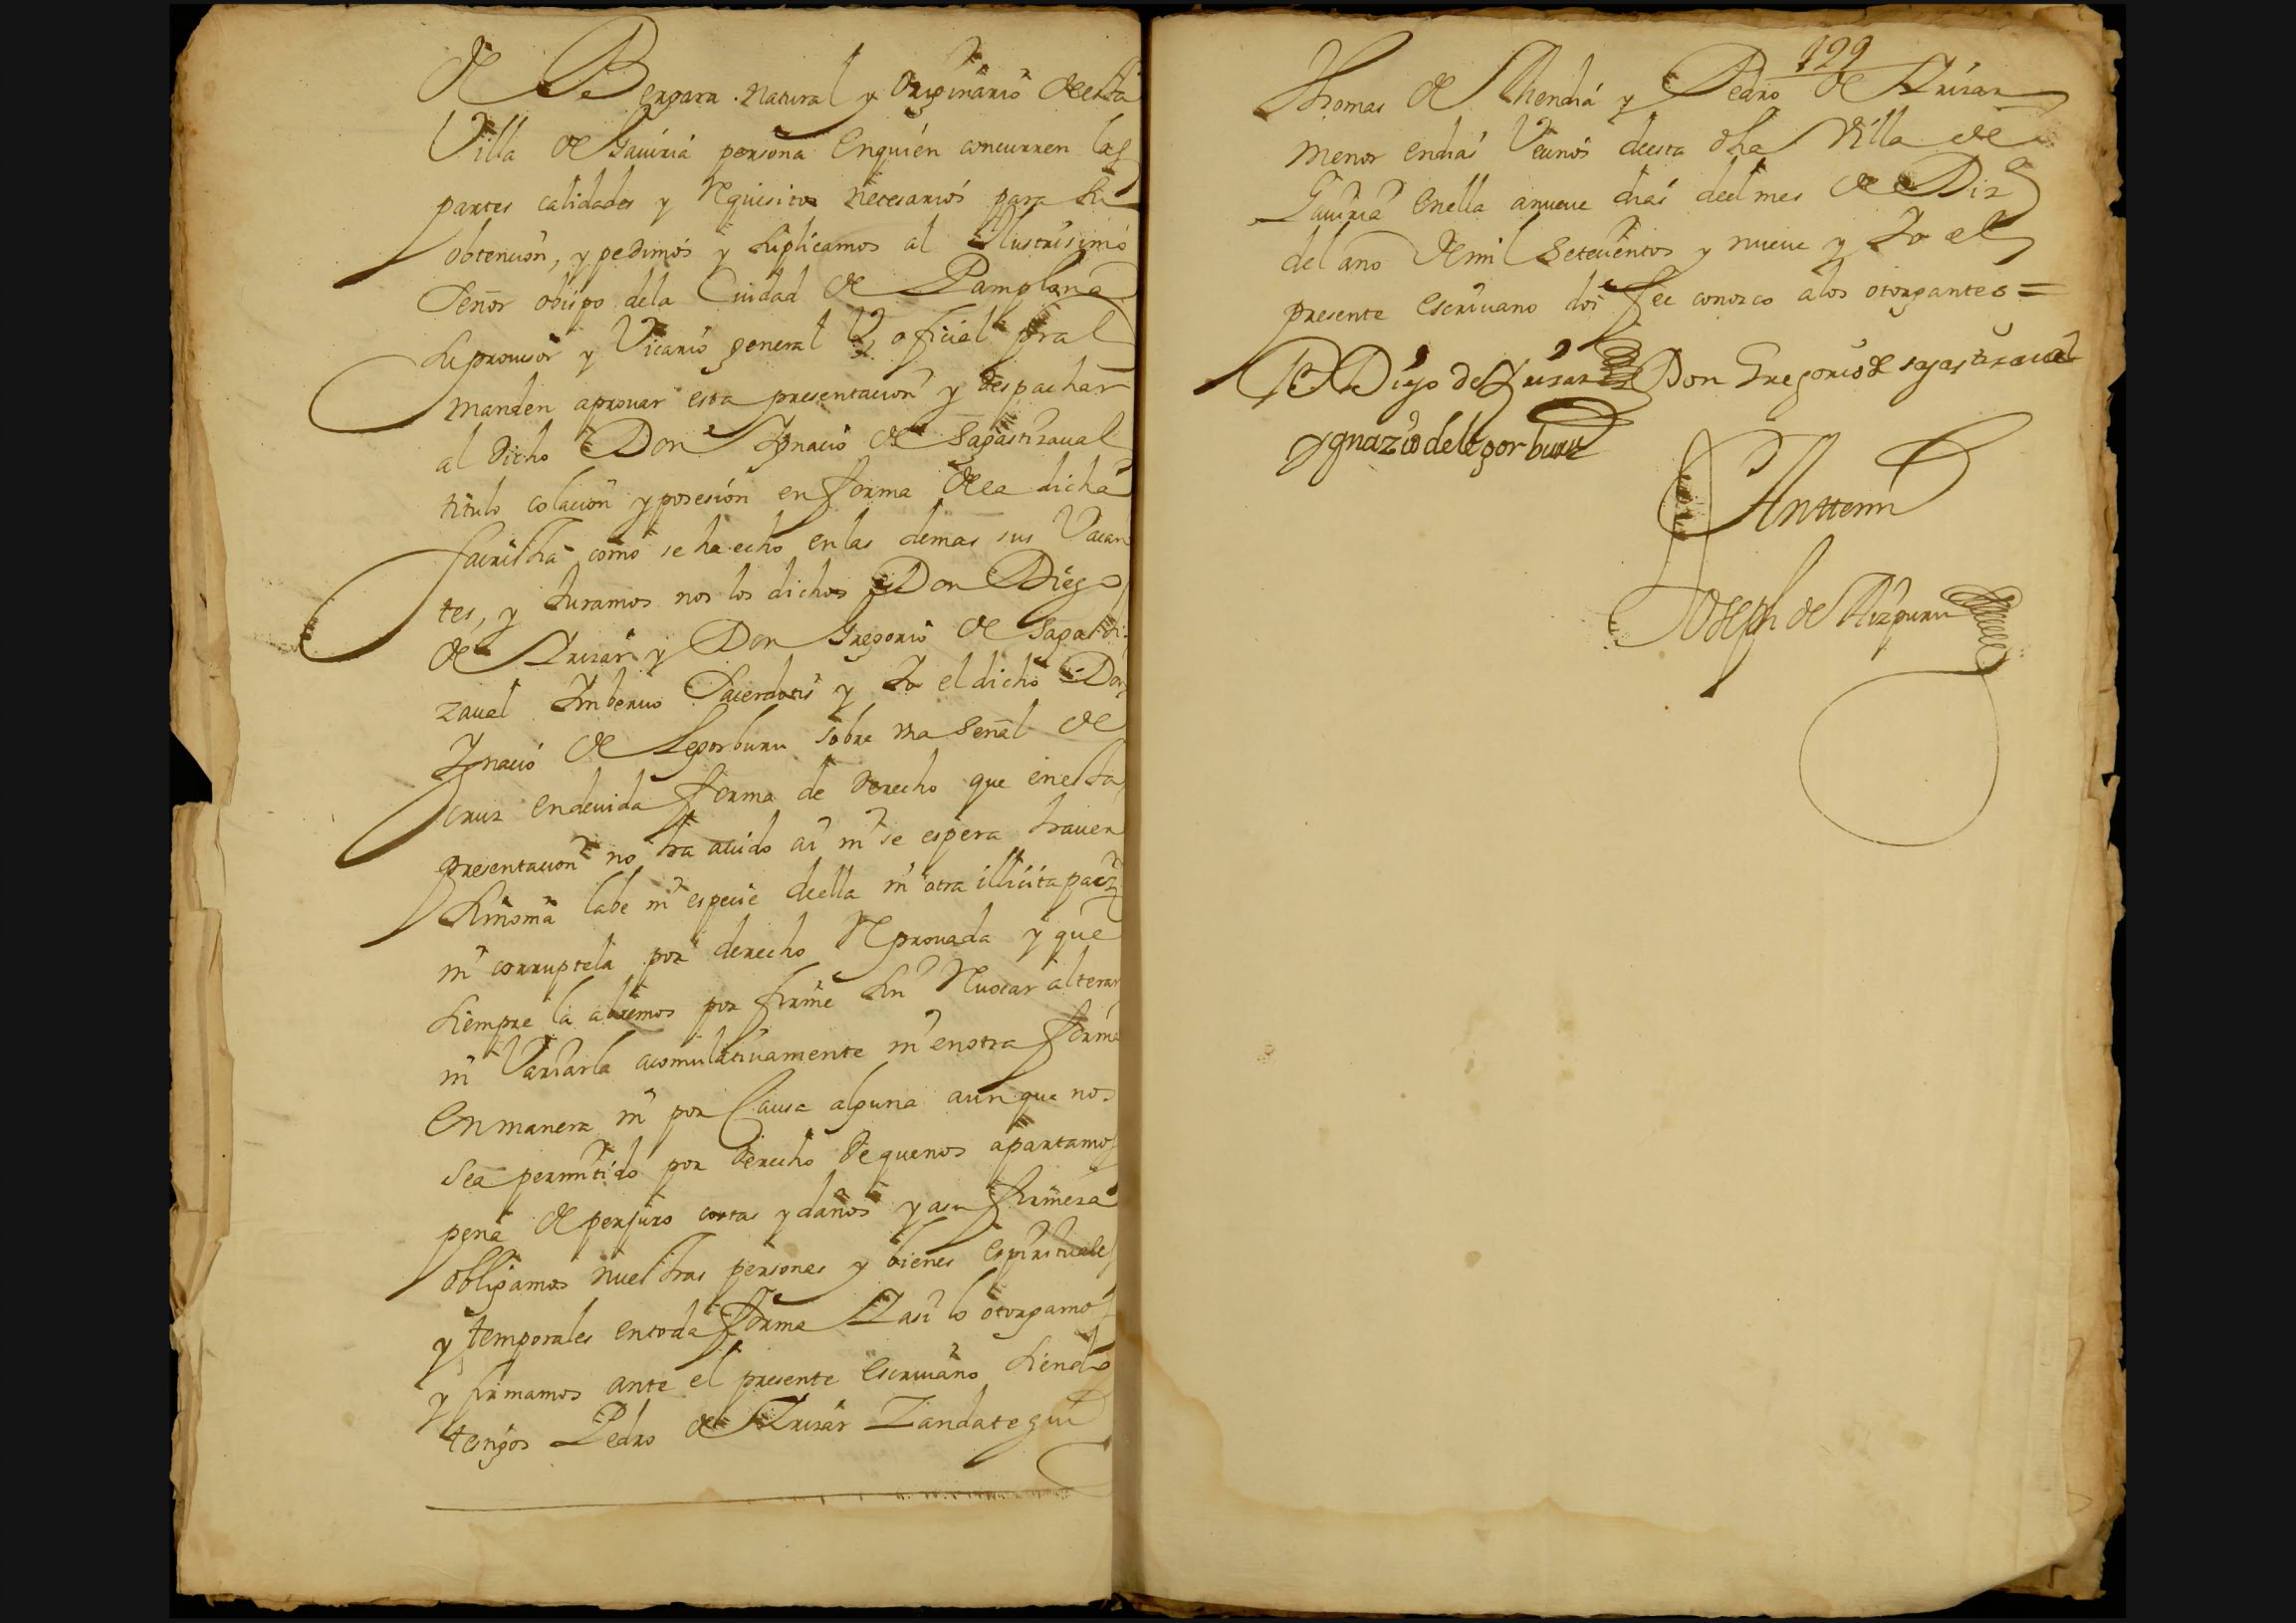 de Bergara natural y originario deesta
Villa de Gauiria persona enquien concurren las
partes calidades y requisitos necesarios para su
obtencion, y pedimos y suplicamos al Illustrisimo
Señor obispo dela Ciudad de Pamplona
su prouisor y Vicario general y oficial pral
manden aprouar esta presentacion y despachar
al dicho Don Ignacio de Sagastizaual
titulo colacion y posesion en forma dela dicha
sacristia como se ha echo en las demas sus Vacan
tes, y Juramos nos los dichos Don Diego
de Irizar y Don Gregorio de Sagasti-
zaual Inberuo Sacerdotis y Io el dicho Don
Ignacio de Legorburu sobre vna Señal de
cruz endeuida forma de derecho que enesta
presentacion no ha auido ai ni se espera hauer
Simonia labe ni especie deella ni otra illicita pac
ni corruptela por derecho reprouada y que
siempre la abremos por firme sin reuocar alterar
ni Variarla acomulatiuamente ni enotra forma
en manera ni por Causa alguna aunque nos
sea permitido por derecho de que nos apartamos
pena de perjuro costas y daños y asu firmeza
obligamos nuestras personas y bienes espirituales
y temporales entoda forma I asi lo otorgamos
y firmamos ante el presente escriuano siendo
testigos Pedro de Irizar Zandategui
129
Thomas de Mendia y Pedro de Irizar
menor endias Vecinos deesta dha Villa de
Gauiria enella anueue dias deel mes de Diz
del año demil setecientos y nueue y Io el
presente escriuano doi fee conozco a los otorgantes =
Diego de Irizar Don Gregorio de sagastizaual
Ygnazio de legorburu
Ante mi
Joseph de Aizpuru